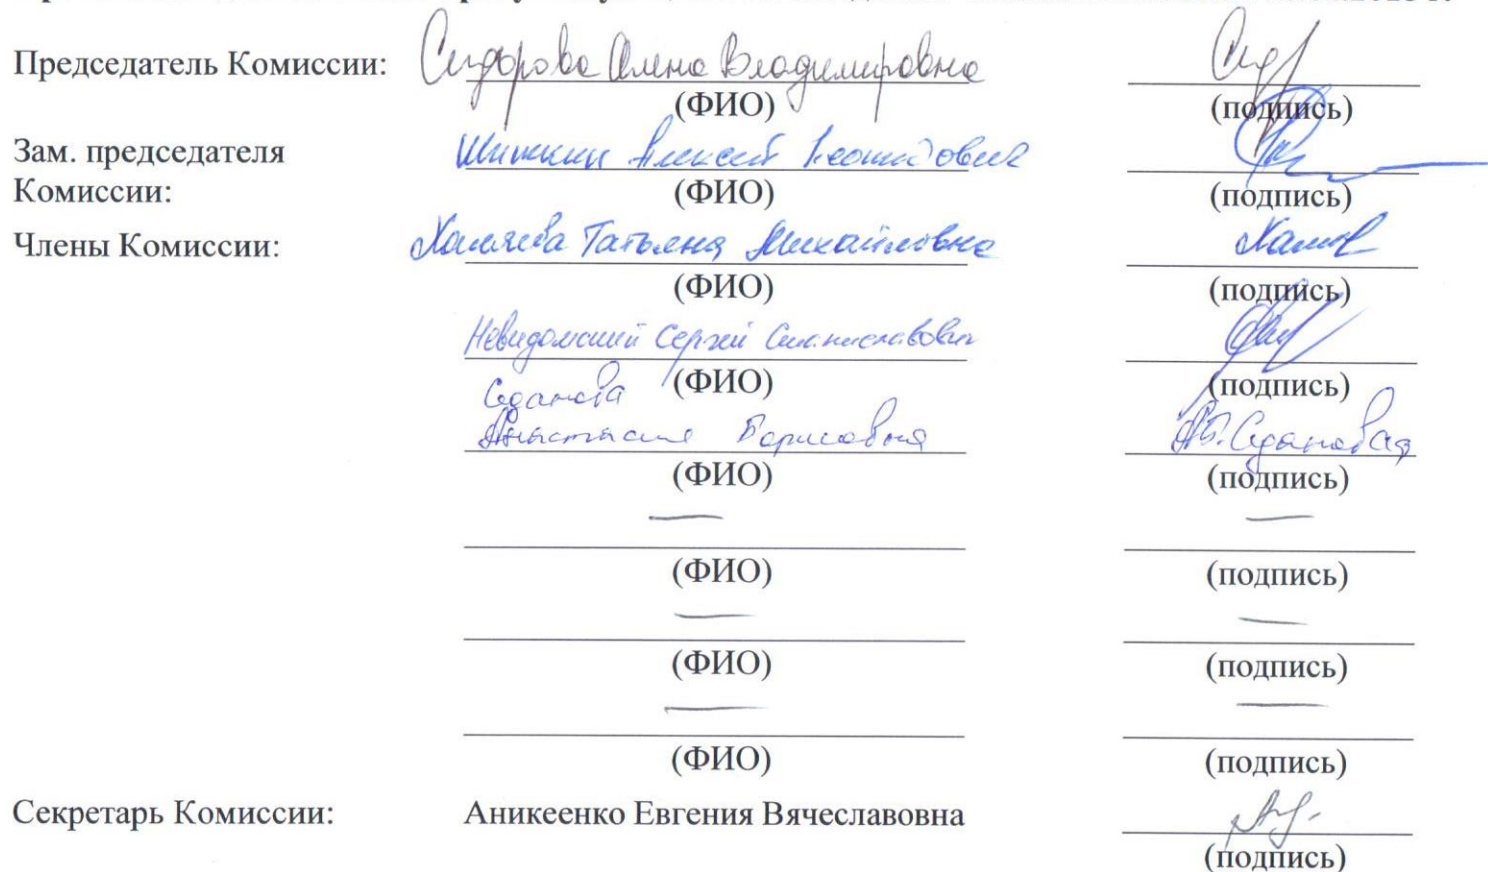 Председатель Комиссии: Сидорова Алена Владимировна
(ФИО) (подпись)
Зам. председателя Шишкин Алексей Леонидович
Комиссии: (ФИО) (подпись)
Члены Комиссии: Татьяна Михайловна
(ФИО) (подпись)
Невидомский Сергей Станиславович
(ФИО) (подпись)
Седанова
Анастасия Борисовна А.Б. Седанова
(ФИО) (подпись)
—
(ФИО) (подпись)
—
(ФИО) (подпись)
—
(ФИО) (подпись)
Секретарь Комиссии: Аникеенко Евгения Вячеславовна
(подпись)